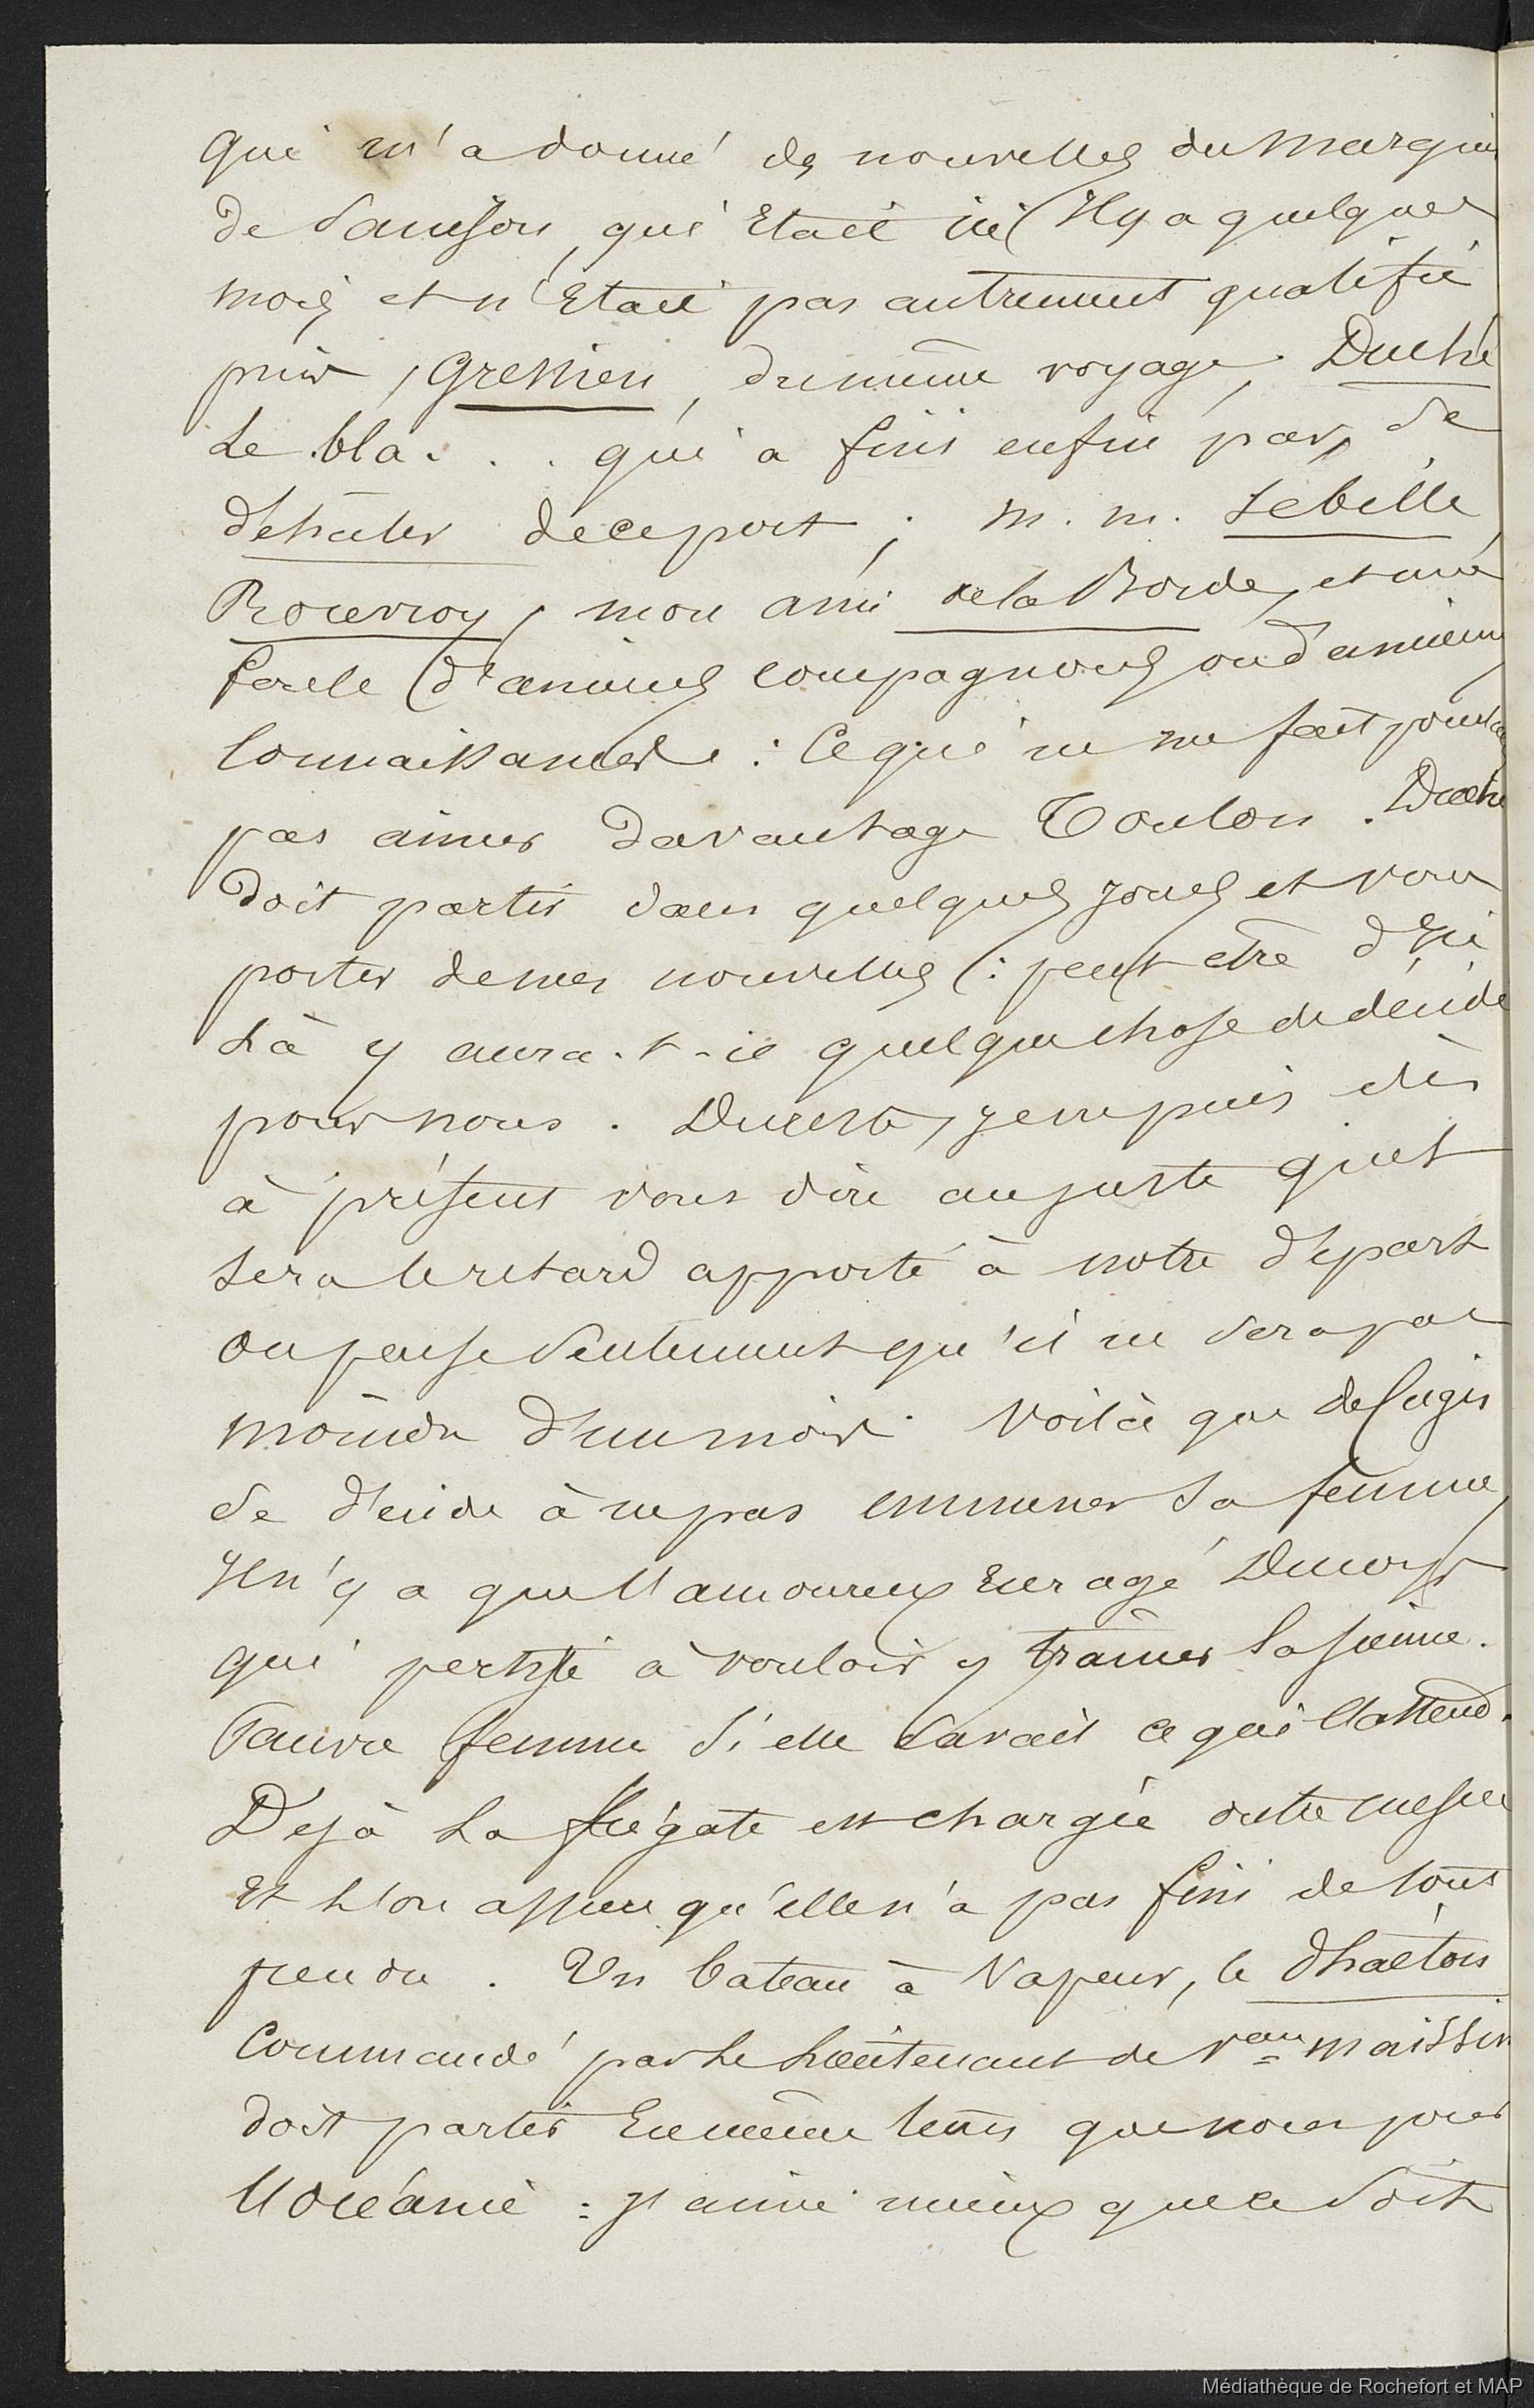 qui m'a donné des nouvelles du Marquis
de Samson, qui Etait ici Il y a quelques
mois et n'Etait pas autrement qualifié
puis, Gressien, du même voyage, Duché
Le bla... qui a fini enfin par se
déhâler de ce port ; M. M. Sebille,
Rouvroy, mon ami de la Borde, et une
foule d'anciens compagnons ou d'anciennes
Connaissances : Ce qui ne me fait pourtant
pas aimer davantage Toulon. Duché
doit partir dans quelques jours et vous
porter de mes nouvelles : peut etre d'Ici
Là y aura-t-il quelque chose de décidé
pour nous. Du reste, je ne puis dès
à présent vous dire au juste quel
Sera le retard apporté à notre départ
on pense Seulement qu'il ne Sera pas
moindre d'un mois. Voilà que de Sugis
Se décide à ne pas emmener Sa femme,
Il n'y a que l'amoureux Enragé
qui persiste à vouloir y traîner la sienne.
Pauvre femme Si elle Savait ce qui l'attend.
Déjà La frégate est chargée outre mesure
Et L'on assure qu'elle n'a pas fini de tout
prendre. Un bateau à Vapeur, le Phaéton
Commandé par Le Lieutenant de Veau Maissin
doit partir En même tems que nous pour
L'Océanie : J'aime mieux que ce Soit